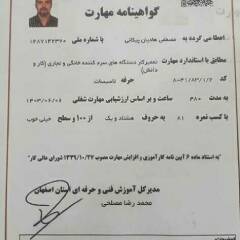 گواهینامه مهارت
اعطا می گردد به مصطفی هادیان پیکانی با شماره ملی ۱۲۸۷۱۴۲۳۶۰
مطابق با استاندارد مهارت تعمیرکار دستگاه های سرد کننده خانگی و تجاری (کار و
دانش)
کد ۸-۴۱/۸۲/۱/۲ حرفه تاسیسات
به مدت ۴۸۰ ساعت و بر اساس ارزشیابی مهارت شغلی ۱۴۰۳/۰۶/۰۸
با کسب نمره ۸۱ به حروف هشتاد و یک از ۱۰۰ و سطح خیلی خوب
به استناد ماده ۶ آیین نامه کارآموزی و افزایش مهارت مصوب ۱۳۳۹/۱۰/۲۷ شورای عالی کار
مدیرکل آموزش فنی و حرفه ای استان اصفهان
محمد رضا مصلحی